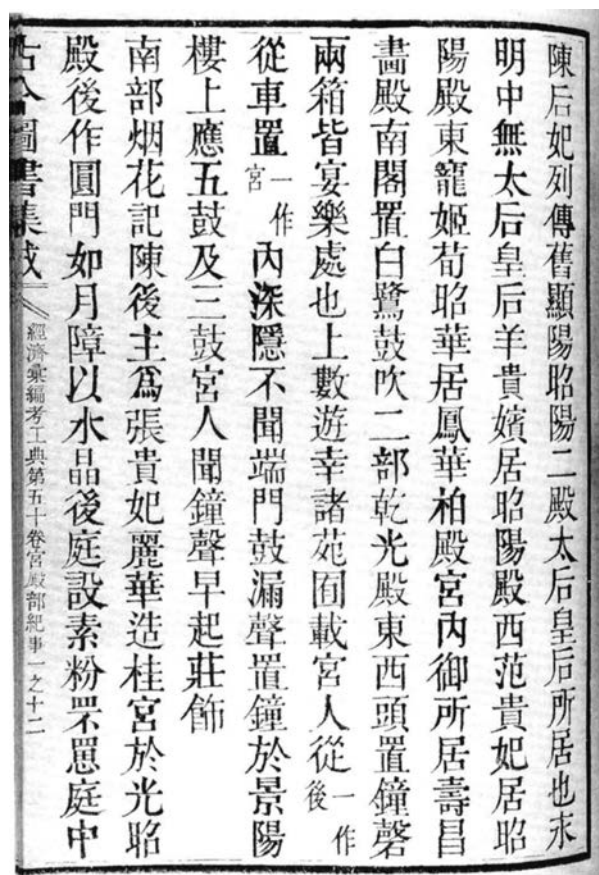 陳后妃列傳舊顯陽昭陽二殿太后皇后所居也永
明中無太后皇后羊貴嬪居昭陽殿西范貴妃居昭
陽殿東寵姬荀昭華居鳳華柏殿宮內御所居壽昌
畵殿南閣置白鷺鼓吹二部乾光殿東西頭置鐘磬
兩箱皆宴樂處也上數遊幸諸苑囿載宮人從一作後
從車置一作宮內深隱不聞端門鼓漏聲置鐘於景陽
樓上應五鼓及三鼓宮人聞鐘聲早起莊飾
南部烟花記陳後主爲張貴妃麗華造桂宮於光昭
殿後作圓門如月障以水晶後庭設素粉罘罳庭中
古今圖書集成
經濟彙編考工典第五十卷宮殿部紀事一之十二